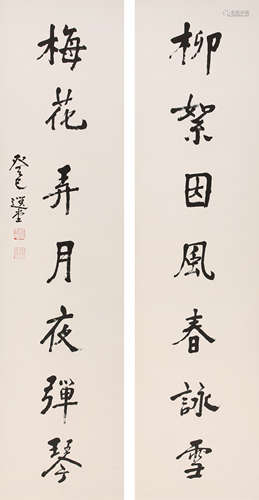 柳絮因風春詠雪
梅花弄月夜彈琴
癸巳 選堂